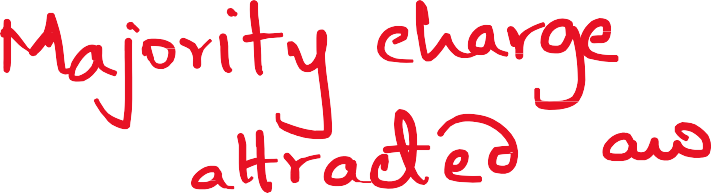 Majority charge
attracted